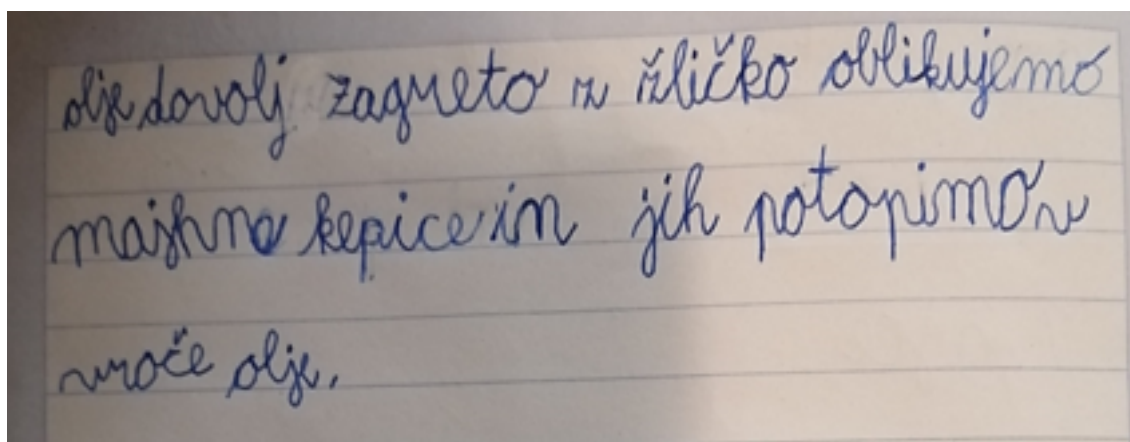 olje dovolj zagreto z žličko oblikujemo
majhne kepice in jih potopimo v
vroče olje.